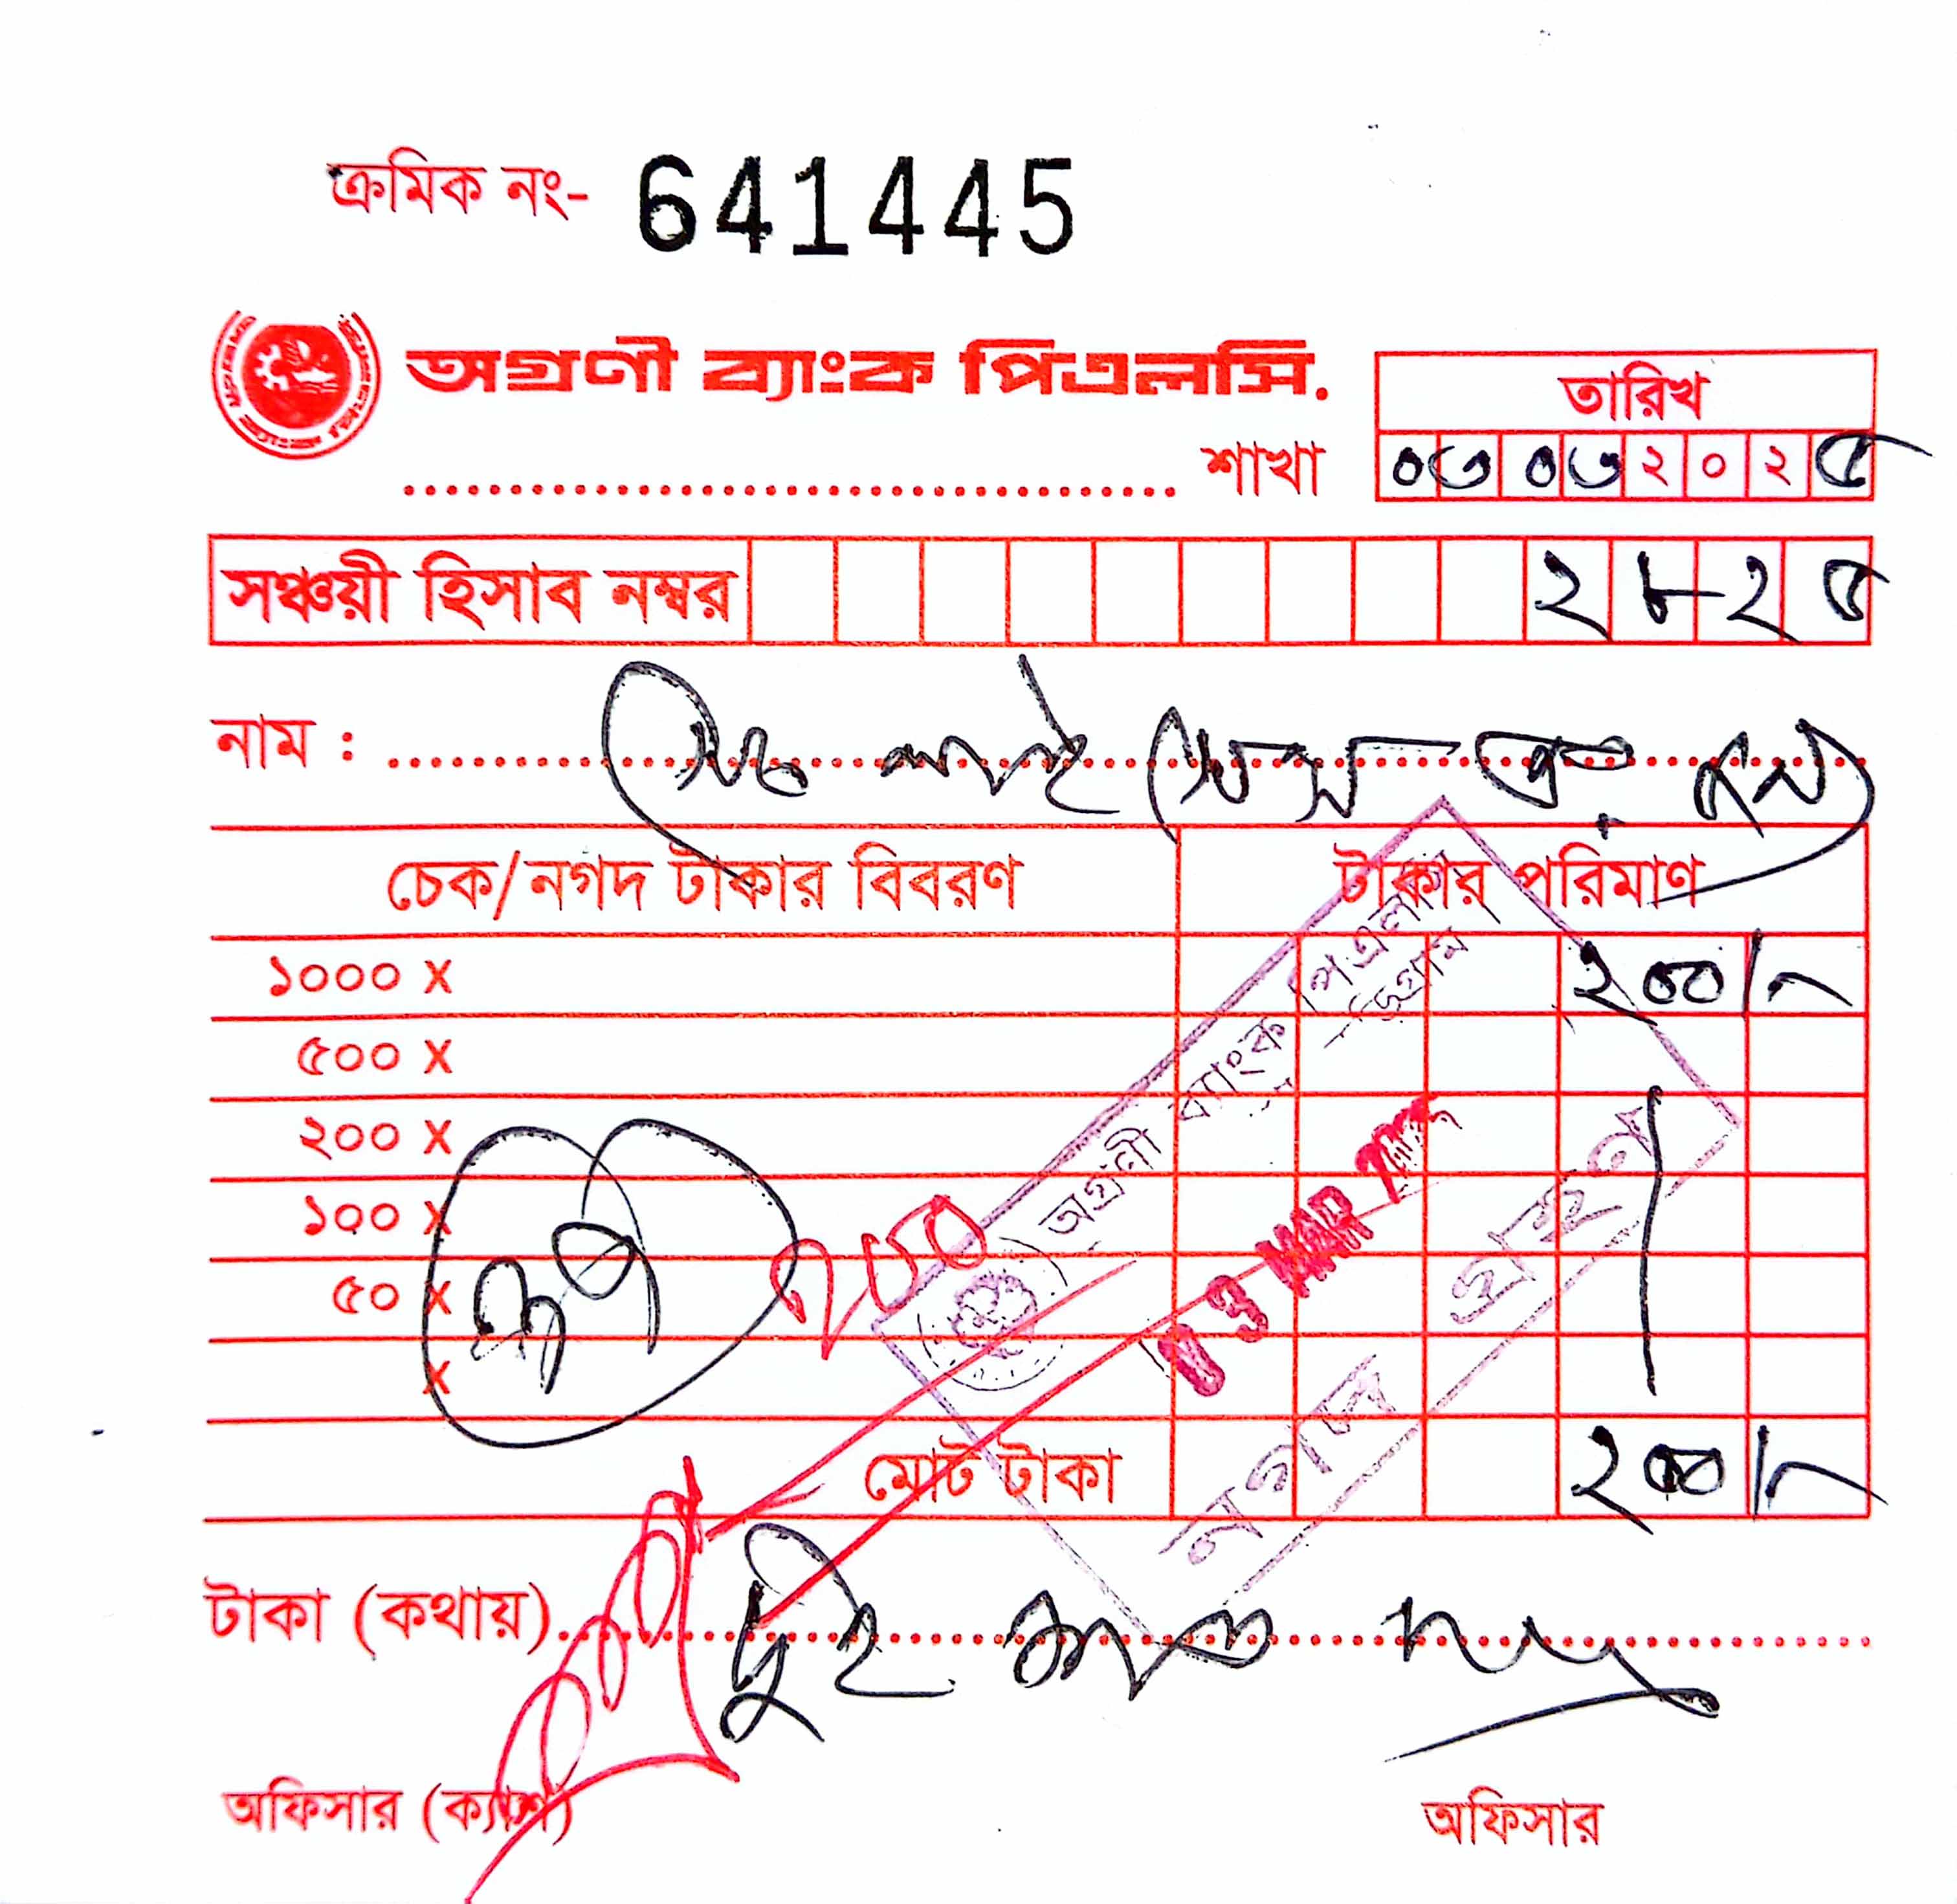 ক্রমিক নং- 641445
অগ্রণী ব্যাংক পিএলসি.
শাখা
তারিখ
০৩০৩২০২৫
সঞ্চয়ী হিসাব নম্বর ২৮২৫
নাম :
চেক/নগদ টাকার বিবরণ টাকার পরিমাণ
১০০০ X ২০০/-
৫০০ X
২০০ X
১০০ X
৫০ X
X
২০০
অগ্রণী ব্যাংক পিএলসি
03 MAR
নগদ গ্রহণ
মোট টাকা ২০০/-
টাকা (কথায়) দুই শত
অফিসার (ক্যাশ) অফিসার